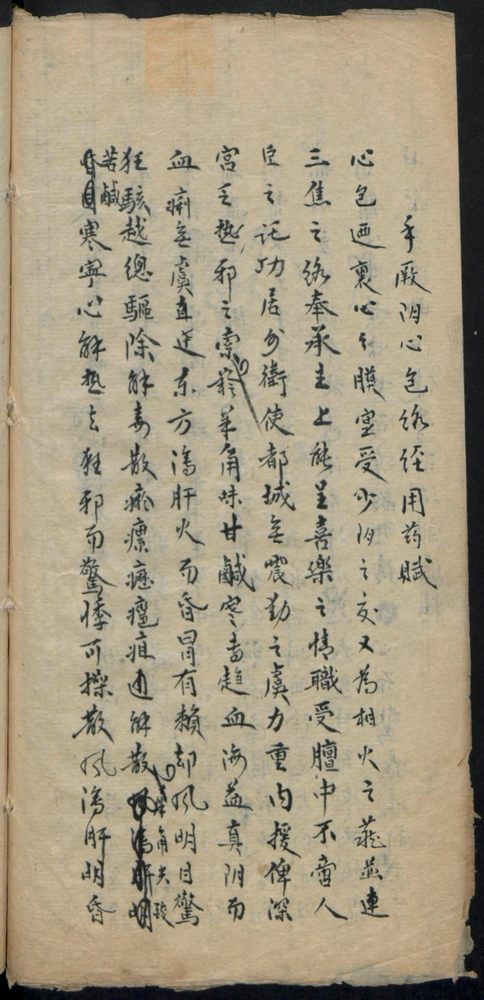 手厥阴心包络经用药赋
心包廼裏心之膜寔受少阴之交又为相火之蔽並連
三焦之络奉承主上能呈喜樂之情職受膻中不啻人
臣之託功居外衛使都城無震動之虞力重内援俾深
宮乏热邪之索羚羊角味甘鹹寒直趋血海益真阴而
血痢無虞直达东方瀉肝火而昏冒有賴却风明目驚
狂駭越总驅除解毒散瘀瘰癧癰疽由解散犀角
苦鹹寒寧心解热去狂邪而驚悸可操散风瀉肝明昏